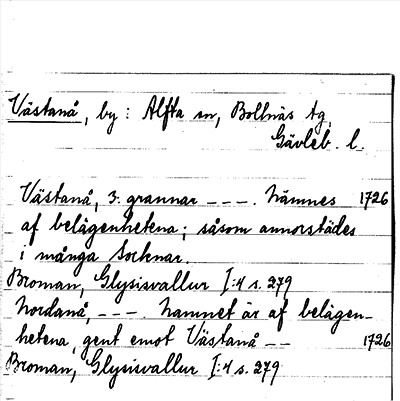 Västanå, by: Alfta sn, Bollnäs tg,
Gävleb. l.
Västanå, 3. grannar ---. Nämnes 1726
af belägenhetena; såsom annorstädes
i många Socknar.
Broman, Glysisvallur I:4 s. 279
Nordanå, ---. Namnet är af belägen-
hetena, gent emot Västanå -- 1726
Broman, Glysisvallur I:4 s. 279